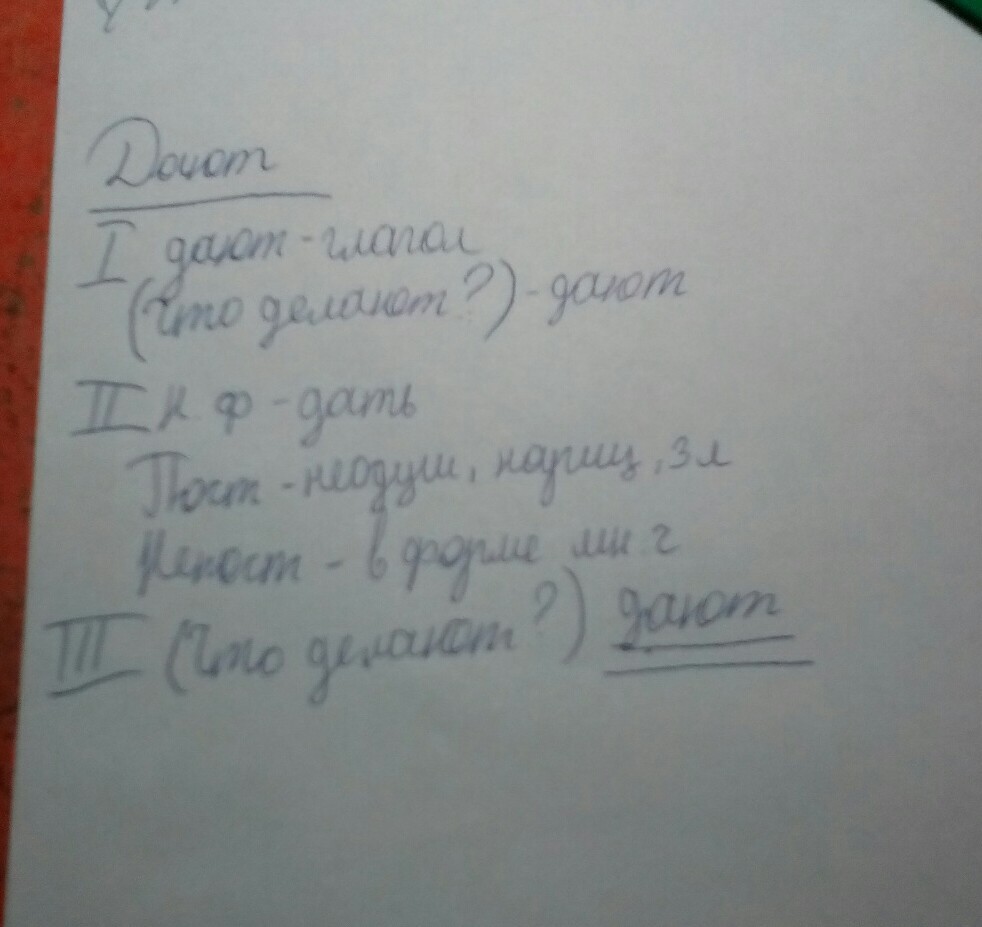 Дают
I дают - глагол
(Что делают?) - дают
II Н.ф - дать
Пост - неодуш, нариц, 3 л
Непост - в форме мн. ч
III (Что делают?) дают